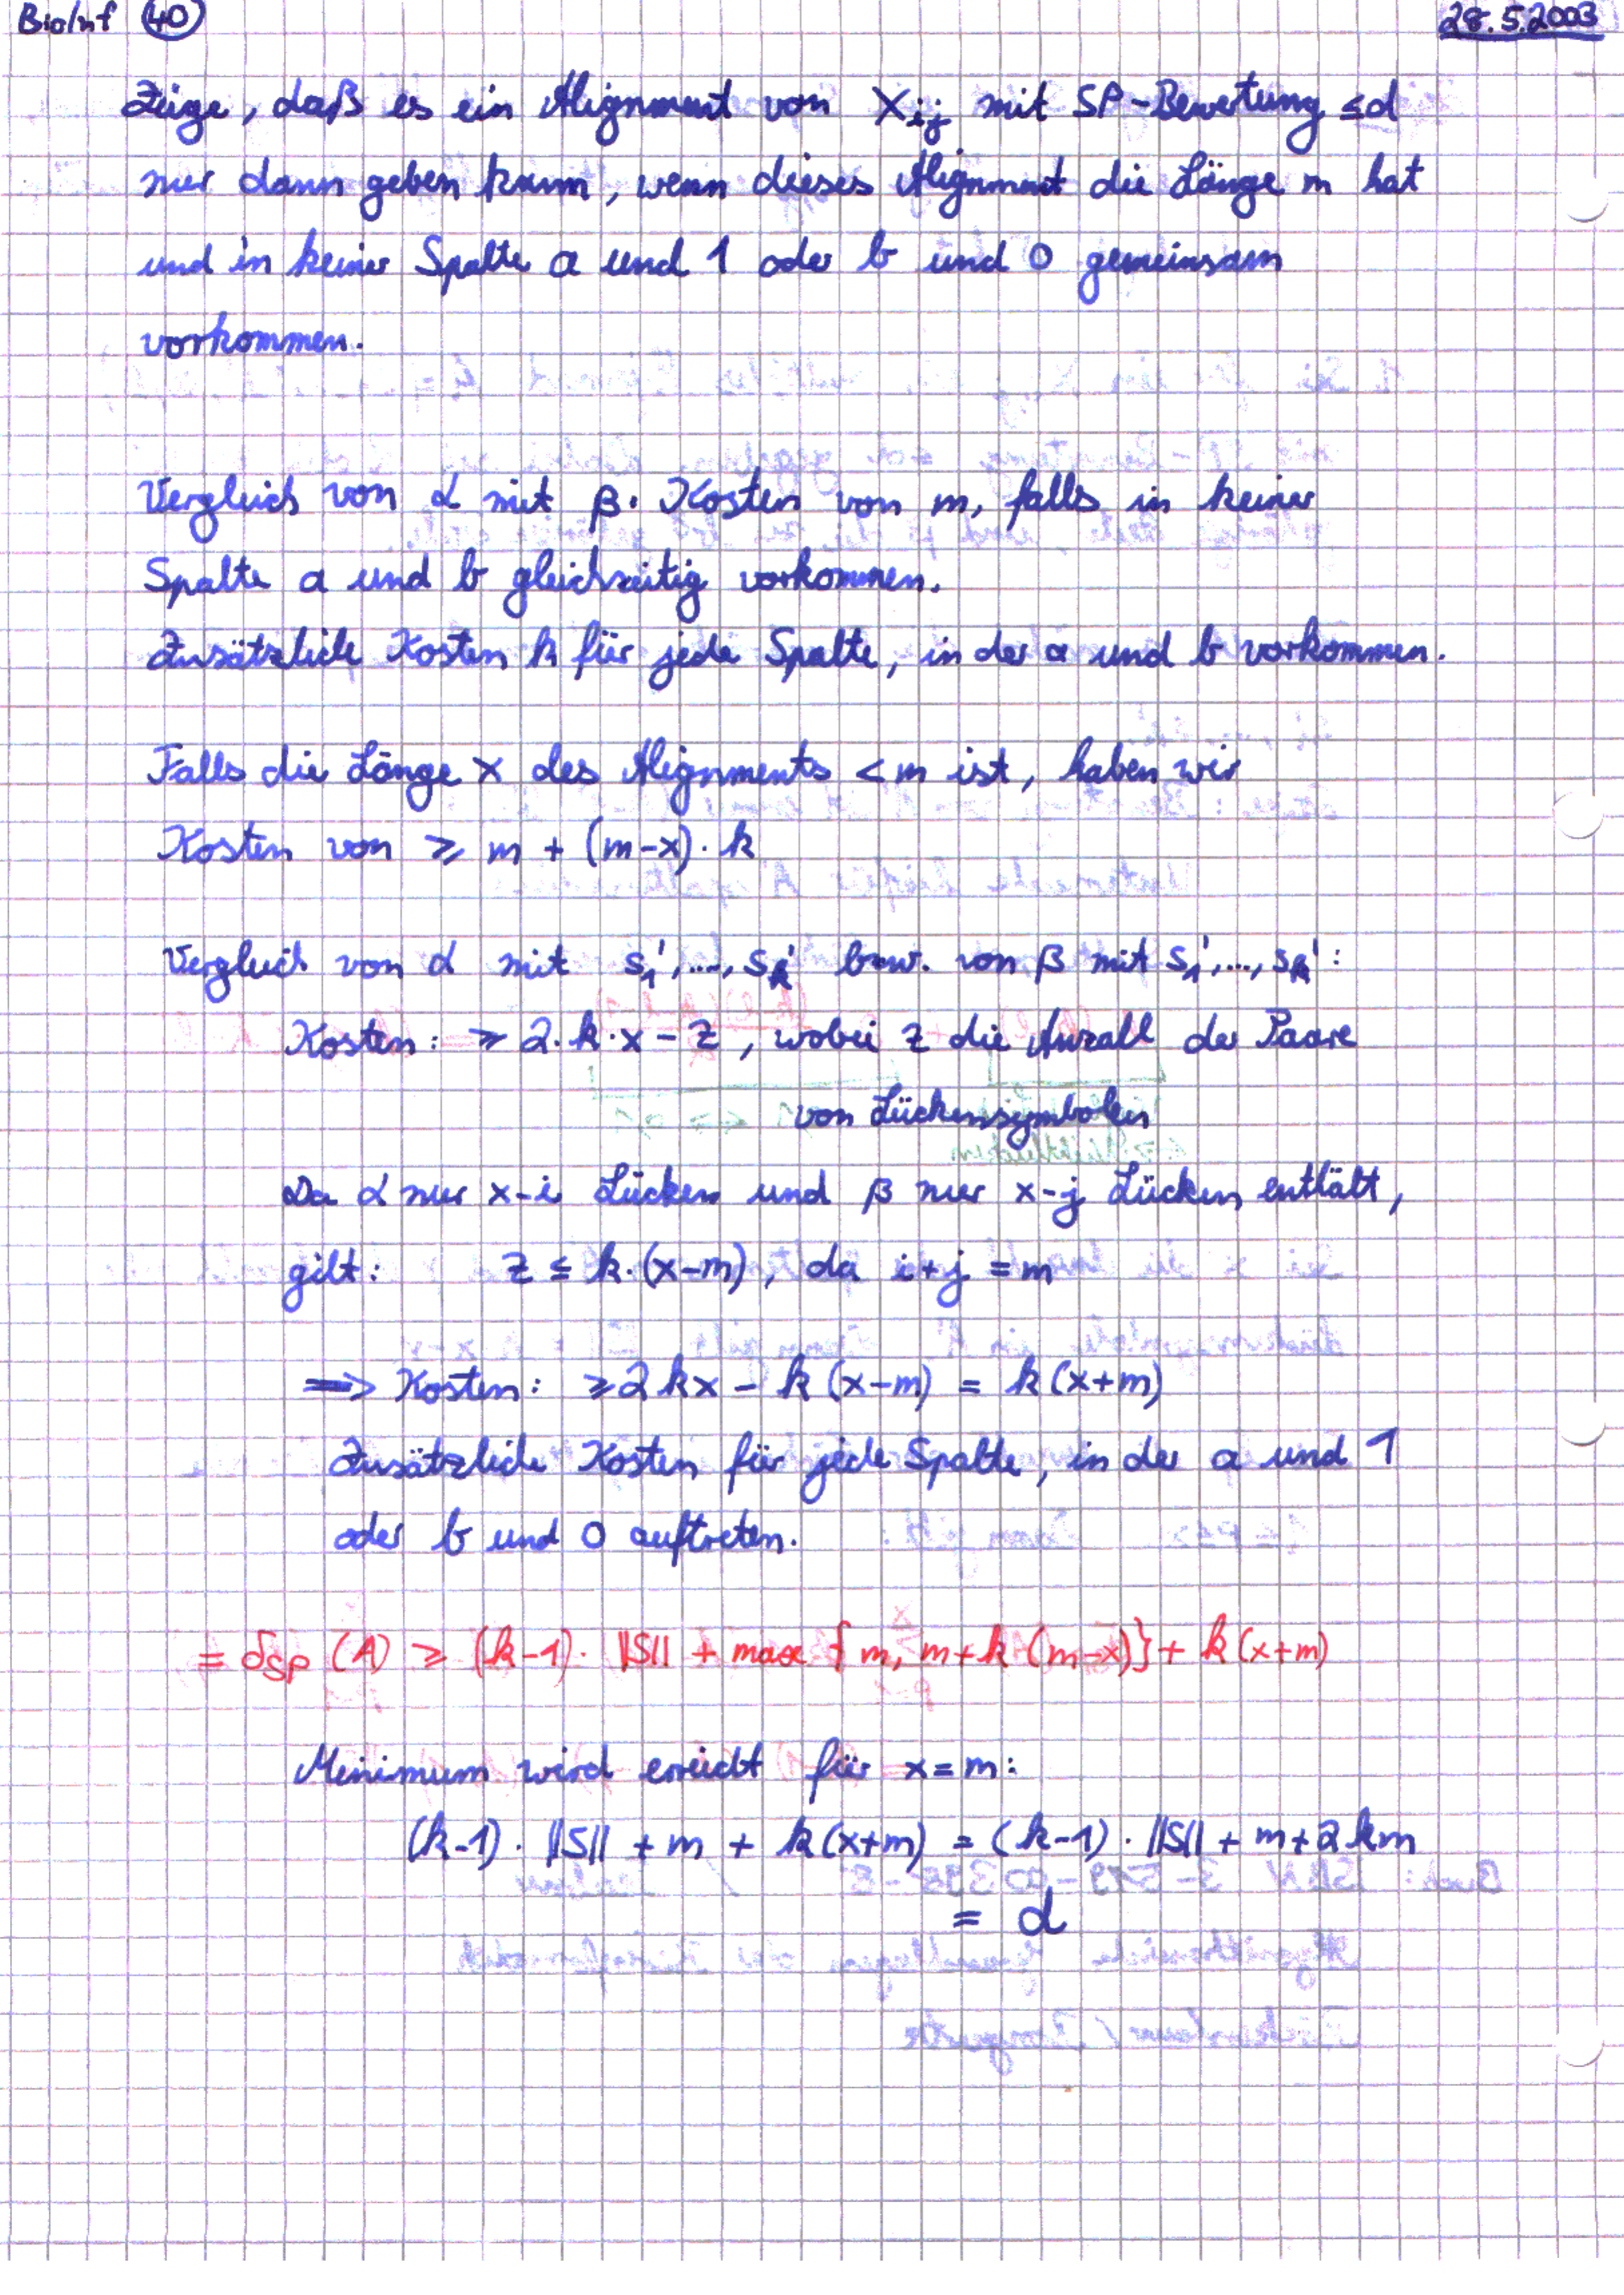 BioInf 40 28.5.2003
Zeige, daß es ein Alignment von X_ij mit SP-Bewertung ≤d
nur dann geben kann, wenn dieses Alignment die Länge m hat
und in keiner Spalte a und 1 oder b und 0 gemeinsam
vorkommen.
Vergleich von α mit β: Kosten von m, falls in keiner
Spalte a und b gleichzeitig vorkommen.
Zusätzliche Kosten k für jede Spalte, in der a und b vorkommen.
Falls die Länge x des Alignments < m ist, haben wir
Kosten von ≥ m + (m-x)·k
Vergleich von α mit s₁',...,s_k' bzw. von β mit s₁',...,s_k':
Kosten: ≥ 2·k·x - z, wobei z die Anzahl der Paare
von Lückensymbolen
Da α nur x-i Lücken und β nur x-j Lücken enthält,
gilt: z ≤ k·(x-m), da i+j = m
⟹ Kosten: ≥2kx - k(x-m) = k(x+m)
Zusätzliche Kosten für jede Spalte, in der a und 1
oder b und 0 auftreten.
= δ_SP (A) ≥ (k-1)· ||S|| + max { m, m+k (m-x)} + k(x+m)
Minimum wird erreicht für x=m:
(k-1)· ||S|| + m + k(x+m) = (k-1)· ||S|| + m+2km
= d